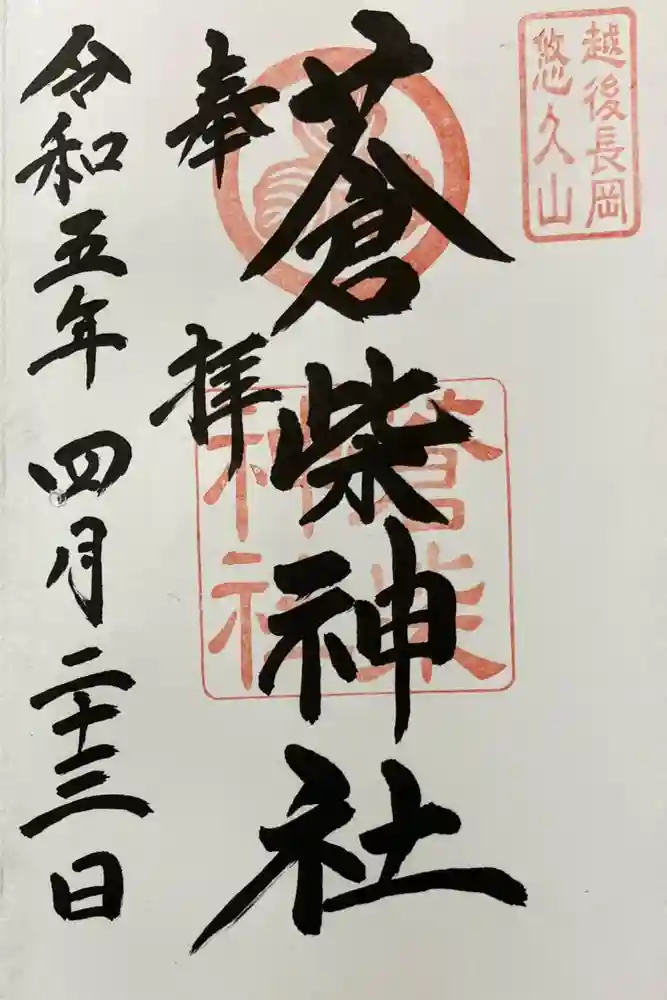 越後長岡
悠久山
蒼柴神社
蒼柴
神社
奉拝
令和五年四月二十三日